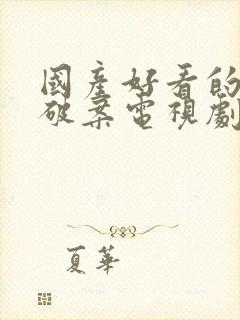 國産好看的
破案電視劇
夏華